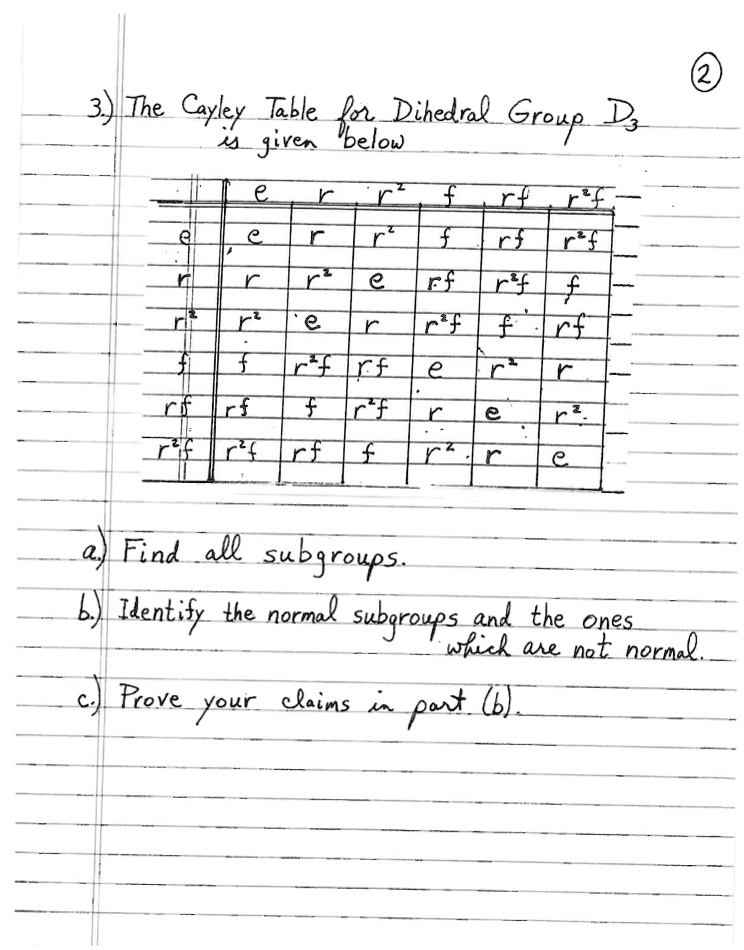 2
3.) The Cayley Table for Dihedral Group D₃
is given below
e r r² f rf r²f
e e r r² f rf r²f
r r r² e rf r²f f
r² r² e r r²f f rf
f f r²f rf e r² r
rf rf f r²f r e r²
r²f r²f rf f r² r e
a.) Find all subgroups.
b.) Identify the normal subgroups and the ones
which are not normal.
c.) Prove your claims in part (b).